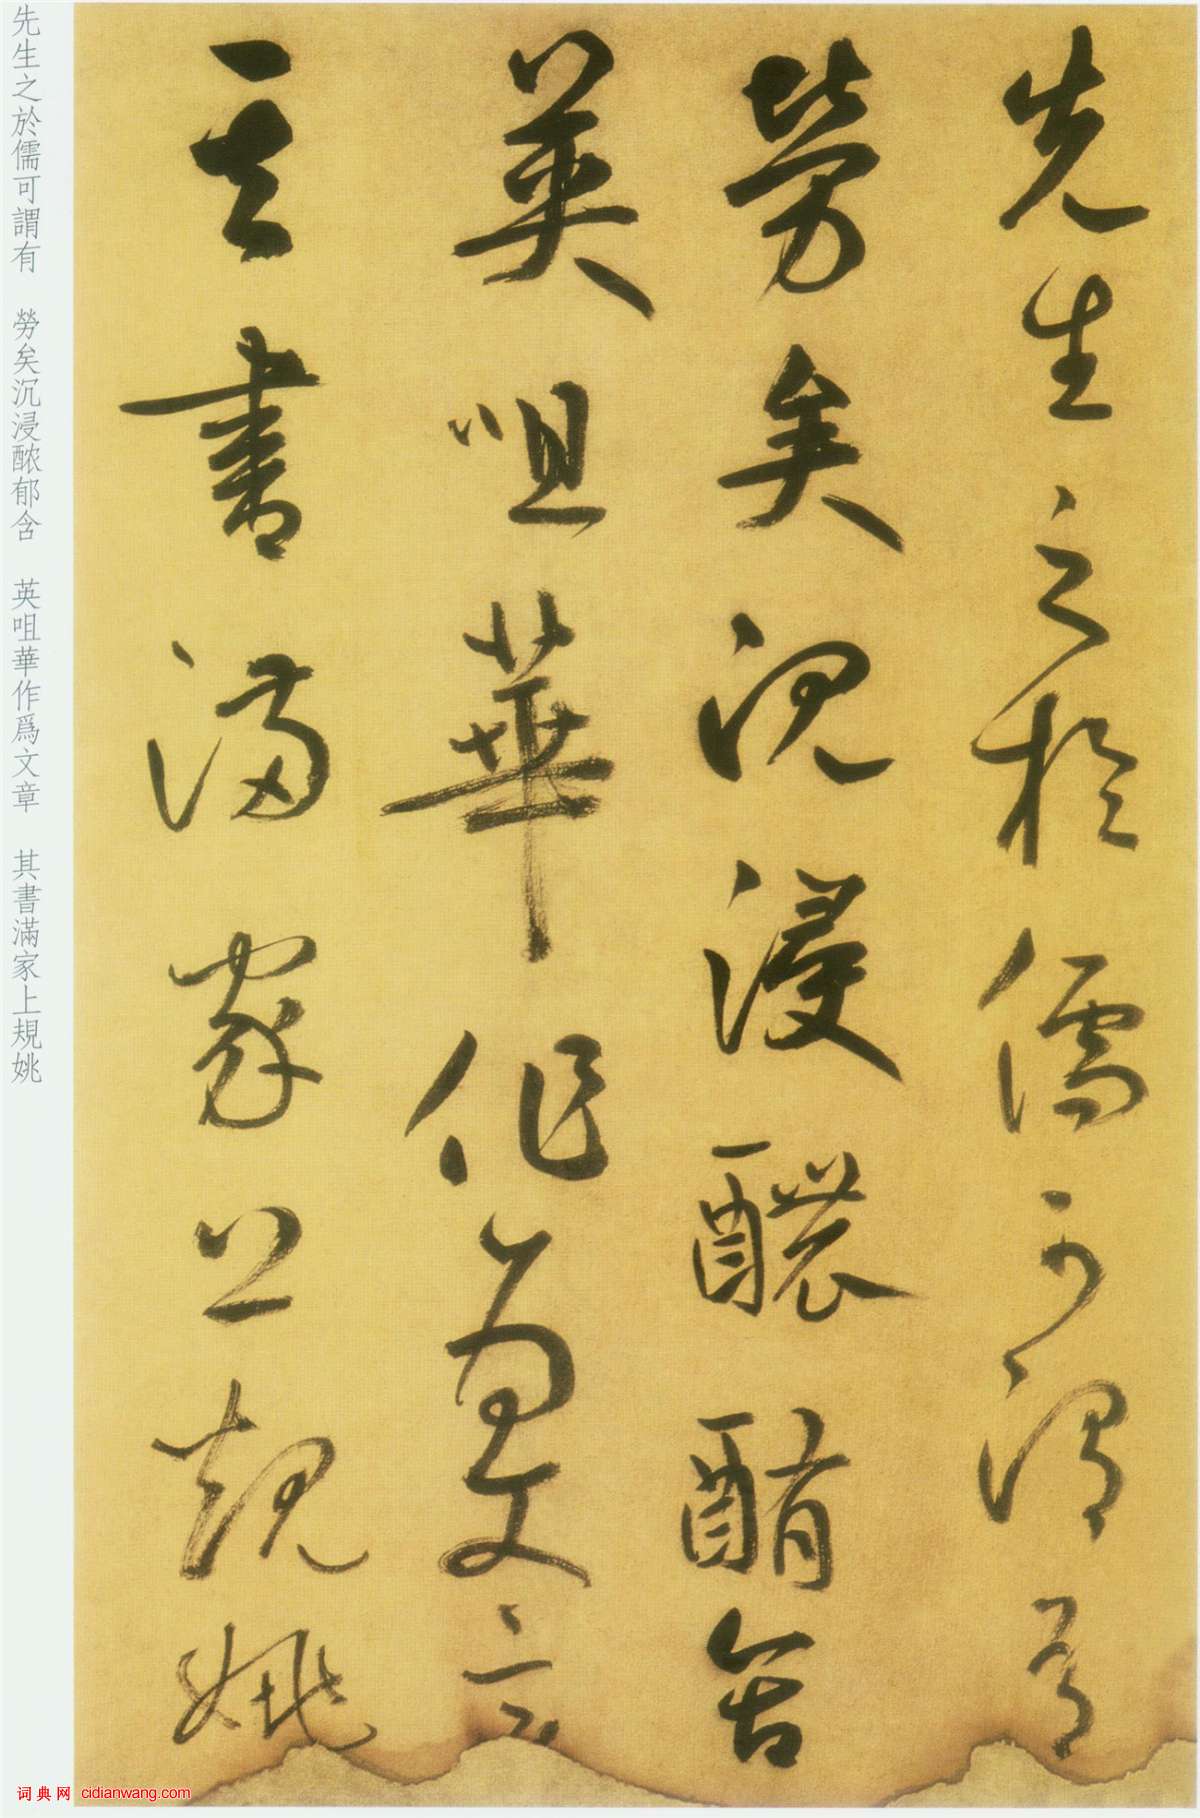 先生之於儒可謂有
勞矣沉浸醲酳含
英咀華作爲文章
其書滿家上規姚
先生之於儒可謂有　勞矣沉浸醲郁含　英咀華作爲文章　其書滿家上規姚
词典网 cidianwang.com